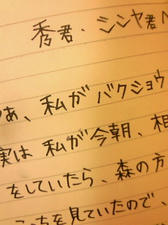 秀君・シンヤ君へ
あ、私がバクショウ
実は 私が今朝、相
をしていたら、森の方
こっちを見ていたので、